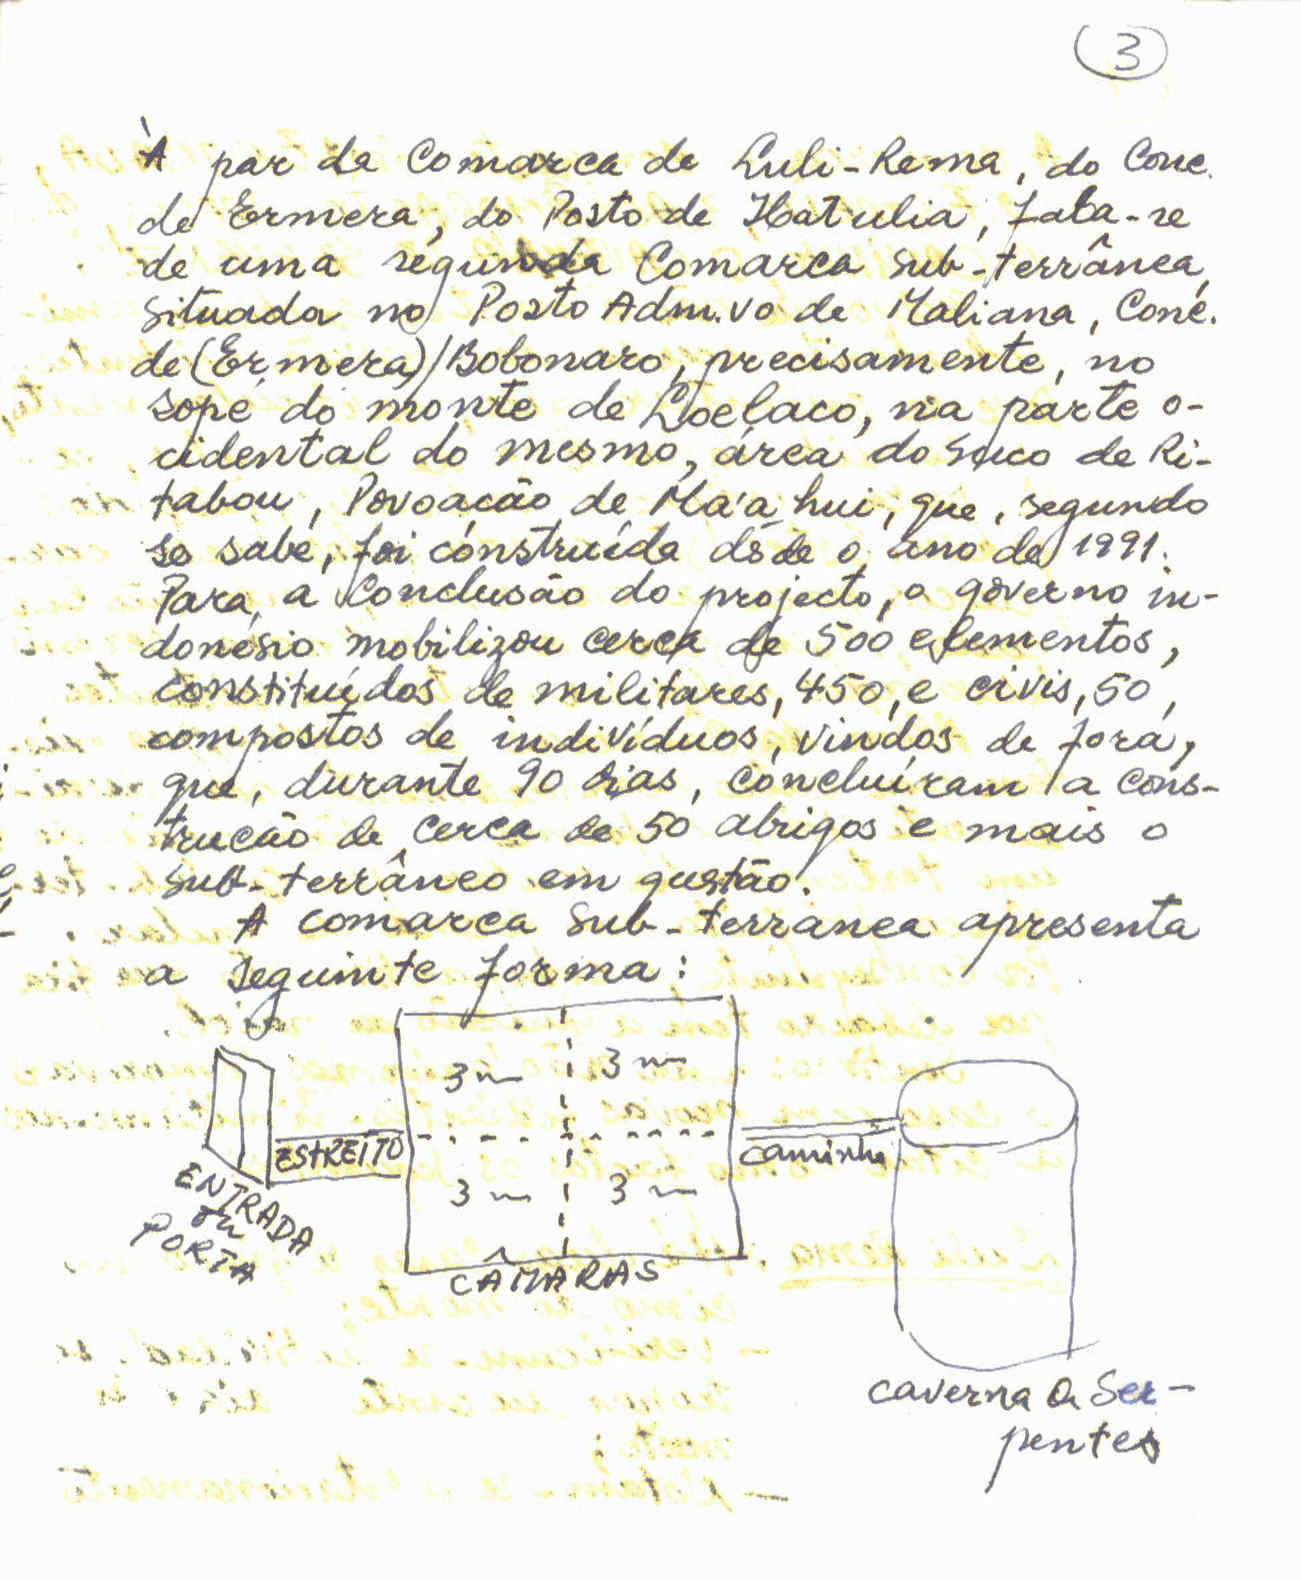 3
À par da Comarca de Luli-Rema, do Conc.
de Ermera, do Posto de Hatulia, fala-se
de uma segunda Comarca sub-terrânea,
situada no Posto Adm.vo de Maliana, Conc.
de (Ermera)/Bobonaro, precisamente, no
sopé do monte de Loelaco, na parte o-
cidental do mesmo, área do Suco de Ri-
tabou, Povoacão de Ma'a hui, que, segundo
se sabe, foi construída dêsde o ano de 1991.
Para a Conclusão do projecto, o governo in-
donésio mobilizou cerca de 500 elementos,
constituídos de militares, 450, e civis, 50,
compostos de indivíduos, vindos de fora,
que, durante 90 dias, concluíram a cons-
trucão de cerca de 50 abrigos e mais o
sub-terrâneo em questão.
A comarca sub-terranea apresenta
a seguinte forma:
3 m 3 m
ESTREITO caminho
3 m 3 m
ENTRADA
ou
PORTA
CÂMARAS
caverna d. Ser-
pentes